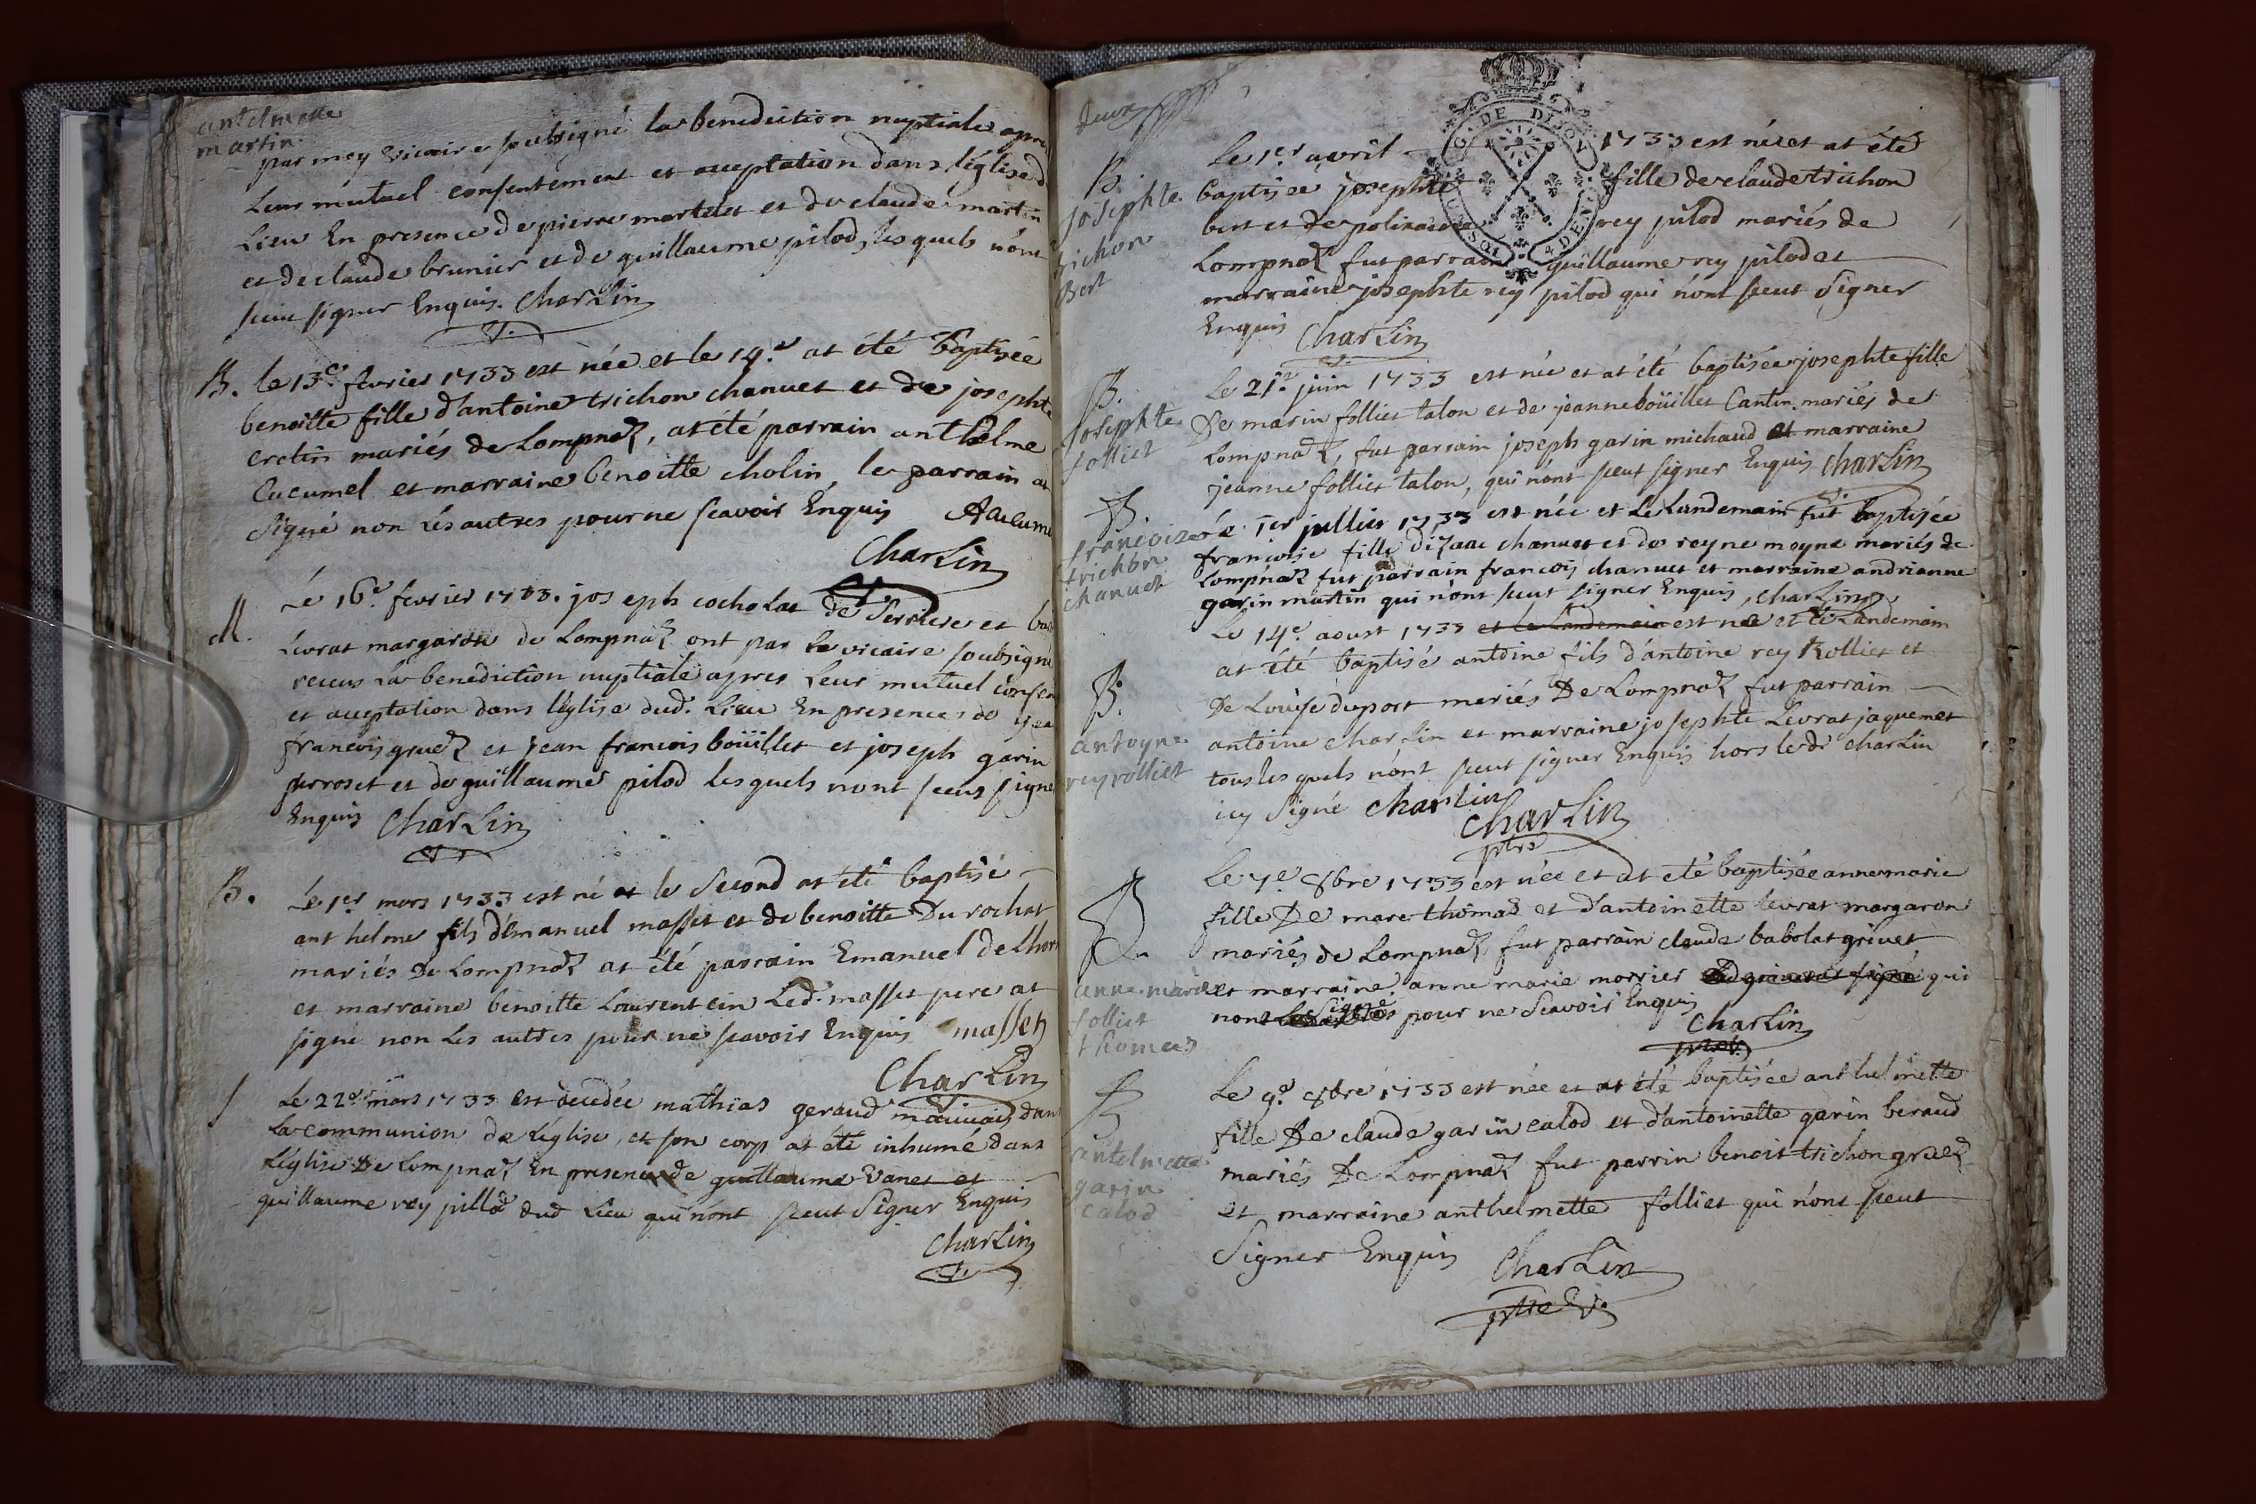 antelmette
martin.
par moy vicaire soubsigné la benediction nuptiale apres
Leur mutuel consentement et acceptation dans l'église d
Lieu En presence de pierre martelet et de claude martin
et de claude brunier et de guillaume pilod, les quels n'ont
sceu signer Enquis. Charlin
B. le 13e. fevrier 1733 est née et le 14.e at été Baptisée
benoitte fille d'antoine trichon chanuet et de josephte
cretin mariés de Lompnaz, at été parrain anthelme
Cucumel et marraine benoitte cholin, le parrain at
Signé non Les autres pour ne scavoir Enquis ACucume
Charlin
M. Lé 16e. fevrier 1733. joseph cocholat de Serriere et
Levrat margaron de Lompnaz ont par le vicaire soubsigné
receus La benediction nuptiale apres Leur mutuel consen
et acceptation dans l'église dud. Lieu En presences de
francois gruez et jean francois boüillet et joseph garin
perroset et de guillaume pilod lesquels nont sceus signe
Enquis Charlin
B. Le 1er mars 1733 est né et le Second at été baptisé
anthelme fils d'Emanuel masset et de benoitte Du rochat
mariés De Lompnaz at été parrain Emanuel de Lhom
et marraine benoitte Laurent ein Led. masset pere at
signé non Les autres pour ne scavoir Enquis masset
Charlin
Le 22e mars 1733 est decedée mathias geraud dans
La communion de L'église, et son corp at été inhumé dans
L'église De Lompnaz En presence de guillaume Vanet et
guillaume rey pillod dud Lieu qui n'ont sceut Signer Enquis
Charlin
Deux
DE DIJON
B.
josephte
trichon
Bert
Le 1er avril 1733 est née et at été
baptisée josephte fille de claude trichon
bert et de rey pilod mariés de
Lompnaz fut parrain guillaume rey pilod et
marraine josephte rey pilod qui n'ont sceut Signer
Enquis Charlin
B.
josephte
folliet
Le 21e. juin 1733 est née et at été baptisée josephte fille
De marin folliet talon et de jeanne boüillet Cantin mariés de
Lompnaz, fut parrain joseph garin michaud et marraine
jeanne folliet talon, qui n'ont sceut signer Enquis Charlin
B.
francoize
trichon
chanuet
Le 1er juillet 1733 est née et Le Landemain fut baptisée
francoise fille d'izaac chanuet et de reyne moyne mariés de
Lompnaz fut parrain francois chanuet et marraine andrianne
garin martin qui n'ont sceut signer Enquis, Charlin
B.
antoyne
rey rolliet
Le 14e. aoust 1733 et Le Landemain est né et Le Landemain
at été baptisé antoine fils d'antoine rey Rolliet et
De Loüise duport mariés De Lompnaz fut parrain
antoine Charlin et marraine josephte Levrat jaquemet
tous les quels n'ont sceut signer Enquis hors ledt Charlin
icy Signé Charlin
Charlin
ptre
B.
anne marie
folliet
thomas
Le 7e. 8bre 1733 est née et at été baptisée anne marie
fille De marc thomaz et d'antoinette levrat margaron
mariés de Lompnaz fut parrain claude babolat grivet
et marraine anne marie morrier qui
nont signe pour ne Scavoir Enquis
Charlin
B
antelmette
garin
calod
Le 9e. 8bre 1733 est née et at été baptisée anthelmette
fille De claude garin calod et d'antoinette garin beraud
mariés De Lompnaz fut parrin benoit trichon gruez
et marraine anthelmette folliet qui n'ont sceut
Signer Enquis Charlin
ptre V.